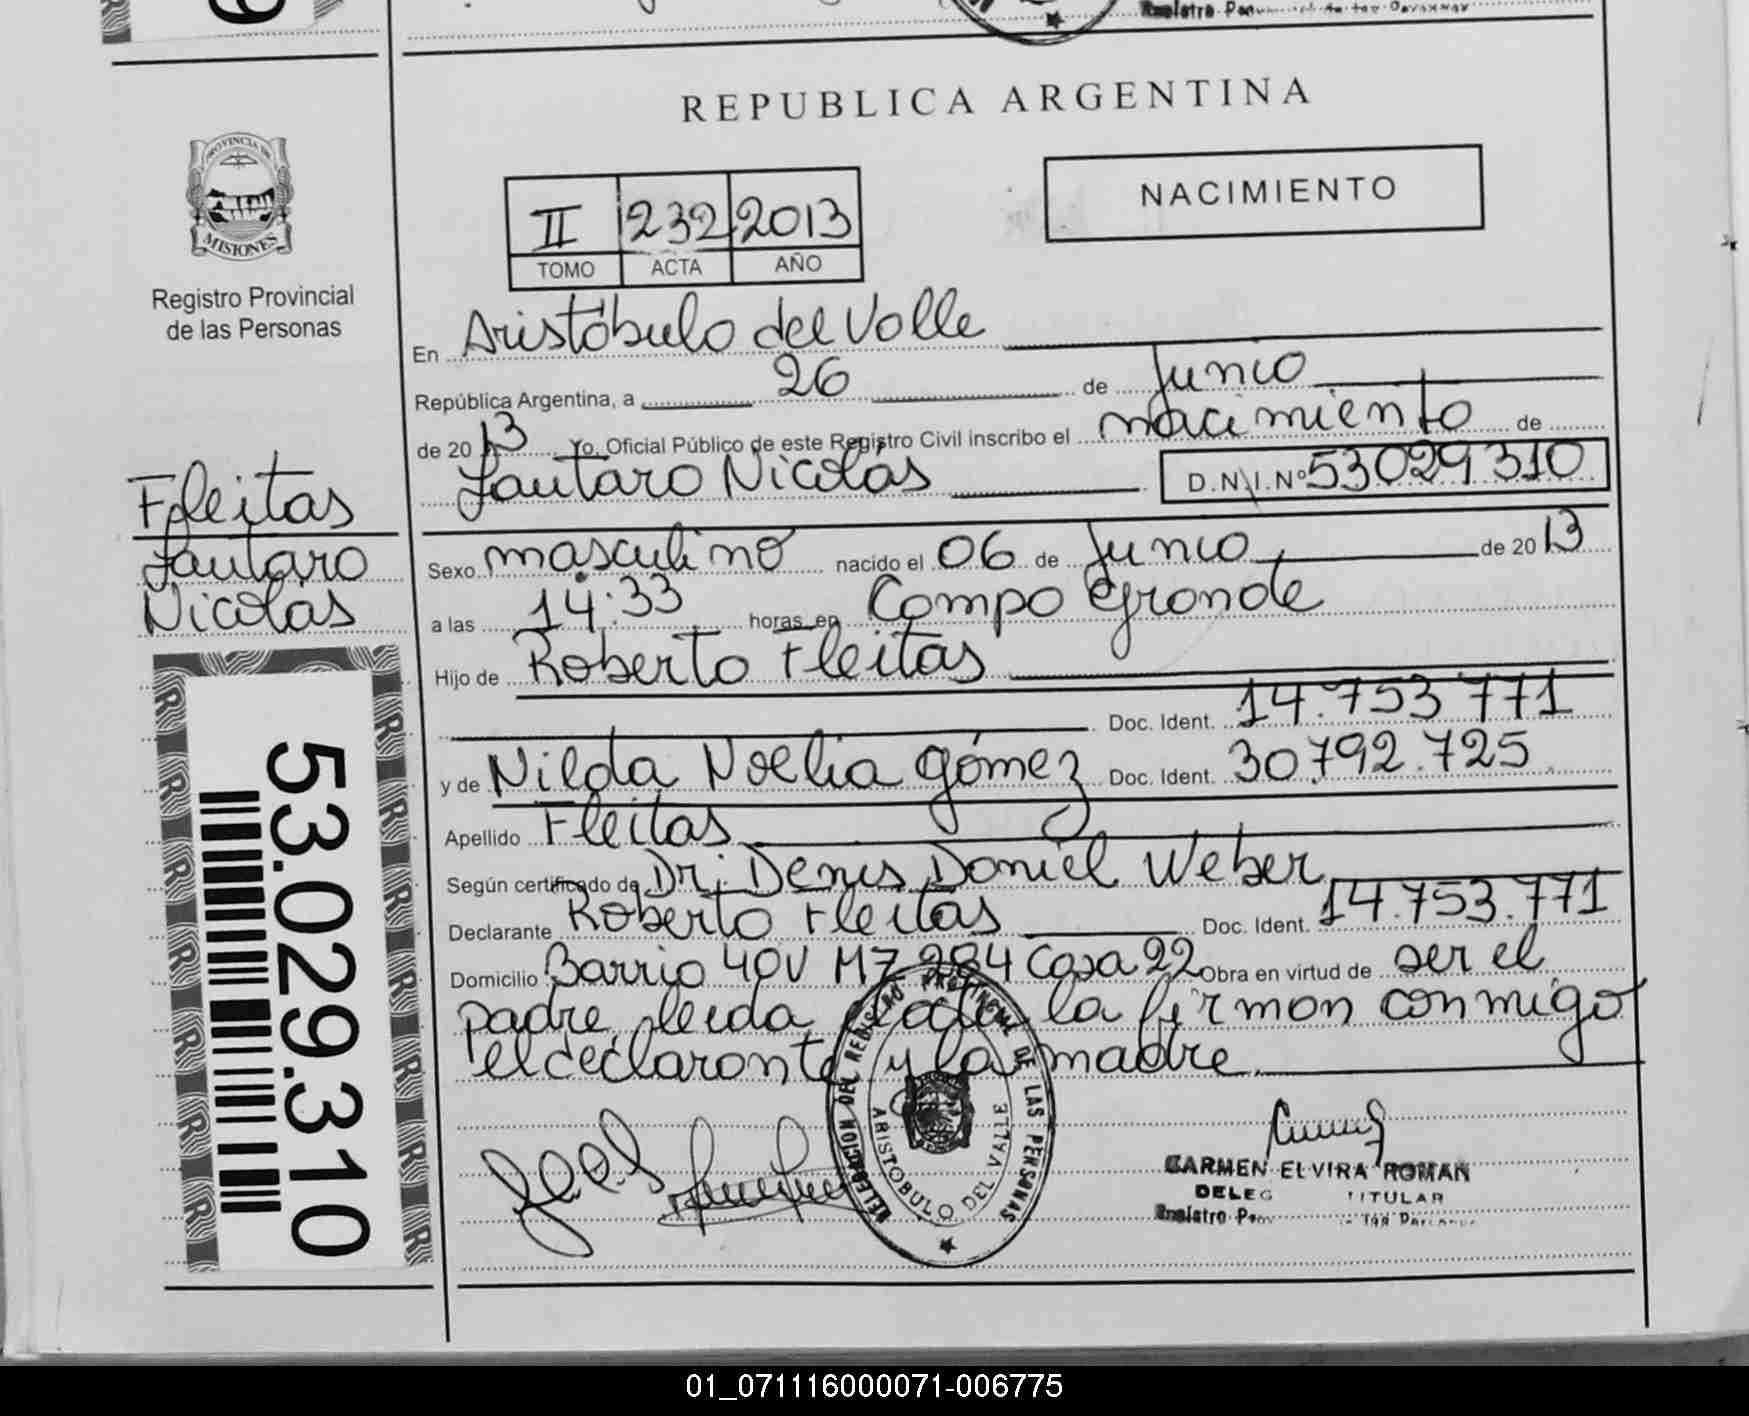 REPUBLICA ARGENTINA
PROVINCIA DE
MISIONES
Registro Provincial
de las Personas
II 232 2013
TOMO ACTA AÑO
NACIMIENTO
En Aristóbulo del Valle
República Argentina, a 26 de Junio
de 2013 Yo, Oficial Público de este Registro Civil inscribo el nacimiento de
Lautaro Nicolás D.N.I.Nº 53029310
Fleitas
Lautaro
Nicolás
Sexo masculino nacido el 06 de Junio de 2013
a las 14:33 horas en Campo Grande
Hijo de Roberto Fleitas
Doc. Ident. 14.753.771
y de Nilda Noelia Gómez Doc. Ident. 30.792.725
Apellido Fleitas
Según certificado de Dr. Denis Daniel Weber
Declarante Roberto Fleitas Doc. Ident. 14.753.771
Domicilio Barrio 40V MZ 284 Casa 22 Obra en virtud de ser el
padre, leida el acta la firman conmigo
el declarante y la madre
53.029.310
DELEGACION DEL REGISTRO PROVINCIAL DE LAS PERSONAS
ARISTOBULO DEL VALLE
CARMEN ELVIRA ROMAN
TITULAR
Registro
01_071116000071-006775